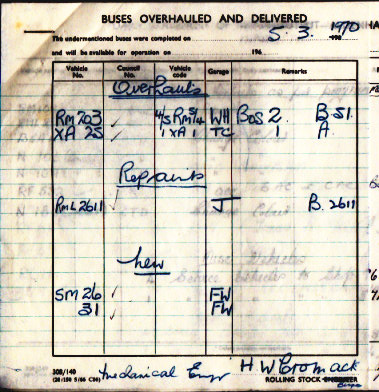 BUSES OVERHAULED AND DELIVERED
The undermentioned buses were completed on 5. 3. 1970
and will be available for operation on 196
Vehicle No. Council No. Vehicle code Garage Remarks
Overhauls
RM 703 WH BDS 2. B.51.
XA 25 1 XA 1 TC 1 A
Repaints
RML 2611 J B. 2611
New
SM 26 FW
31 FW
308/140 Mechanical Engr H W Cromack
ROLLING STOCK ENGINEER